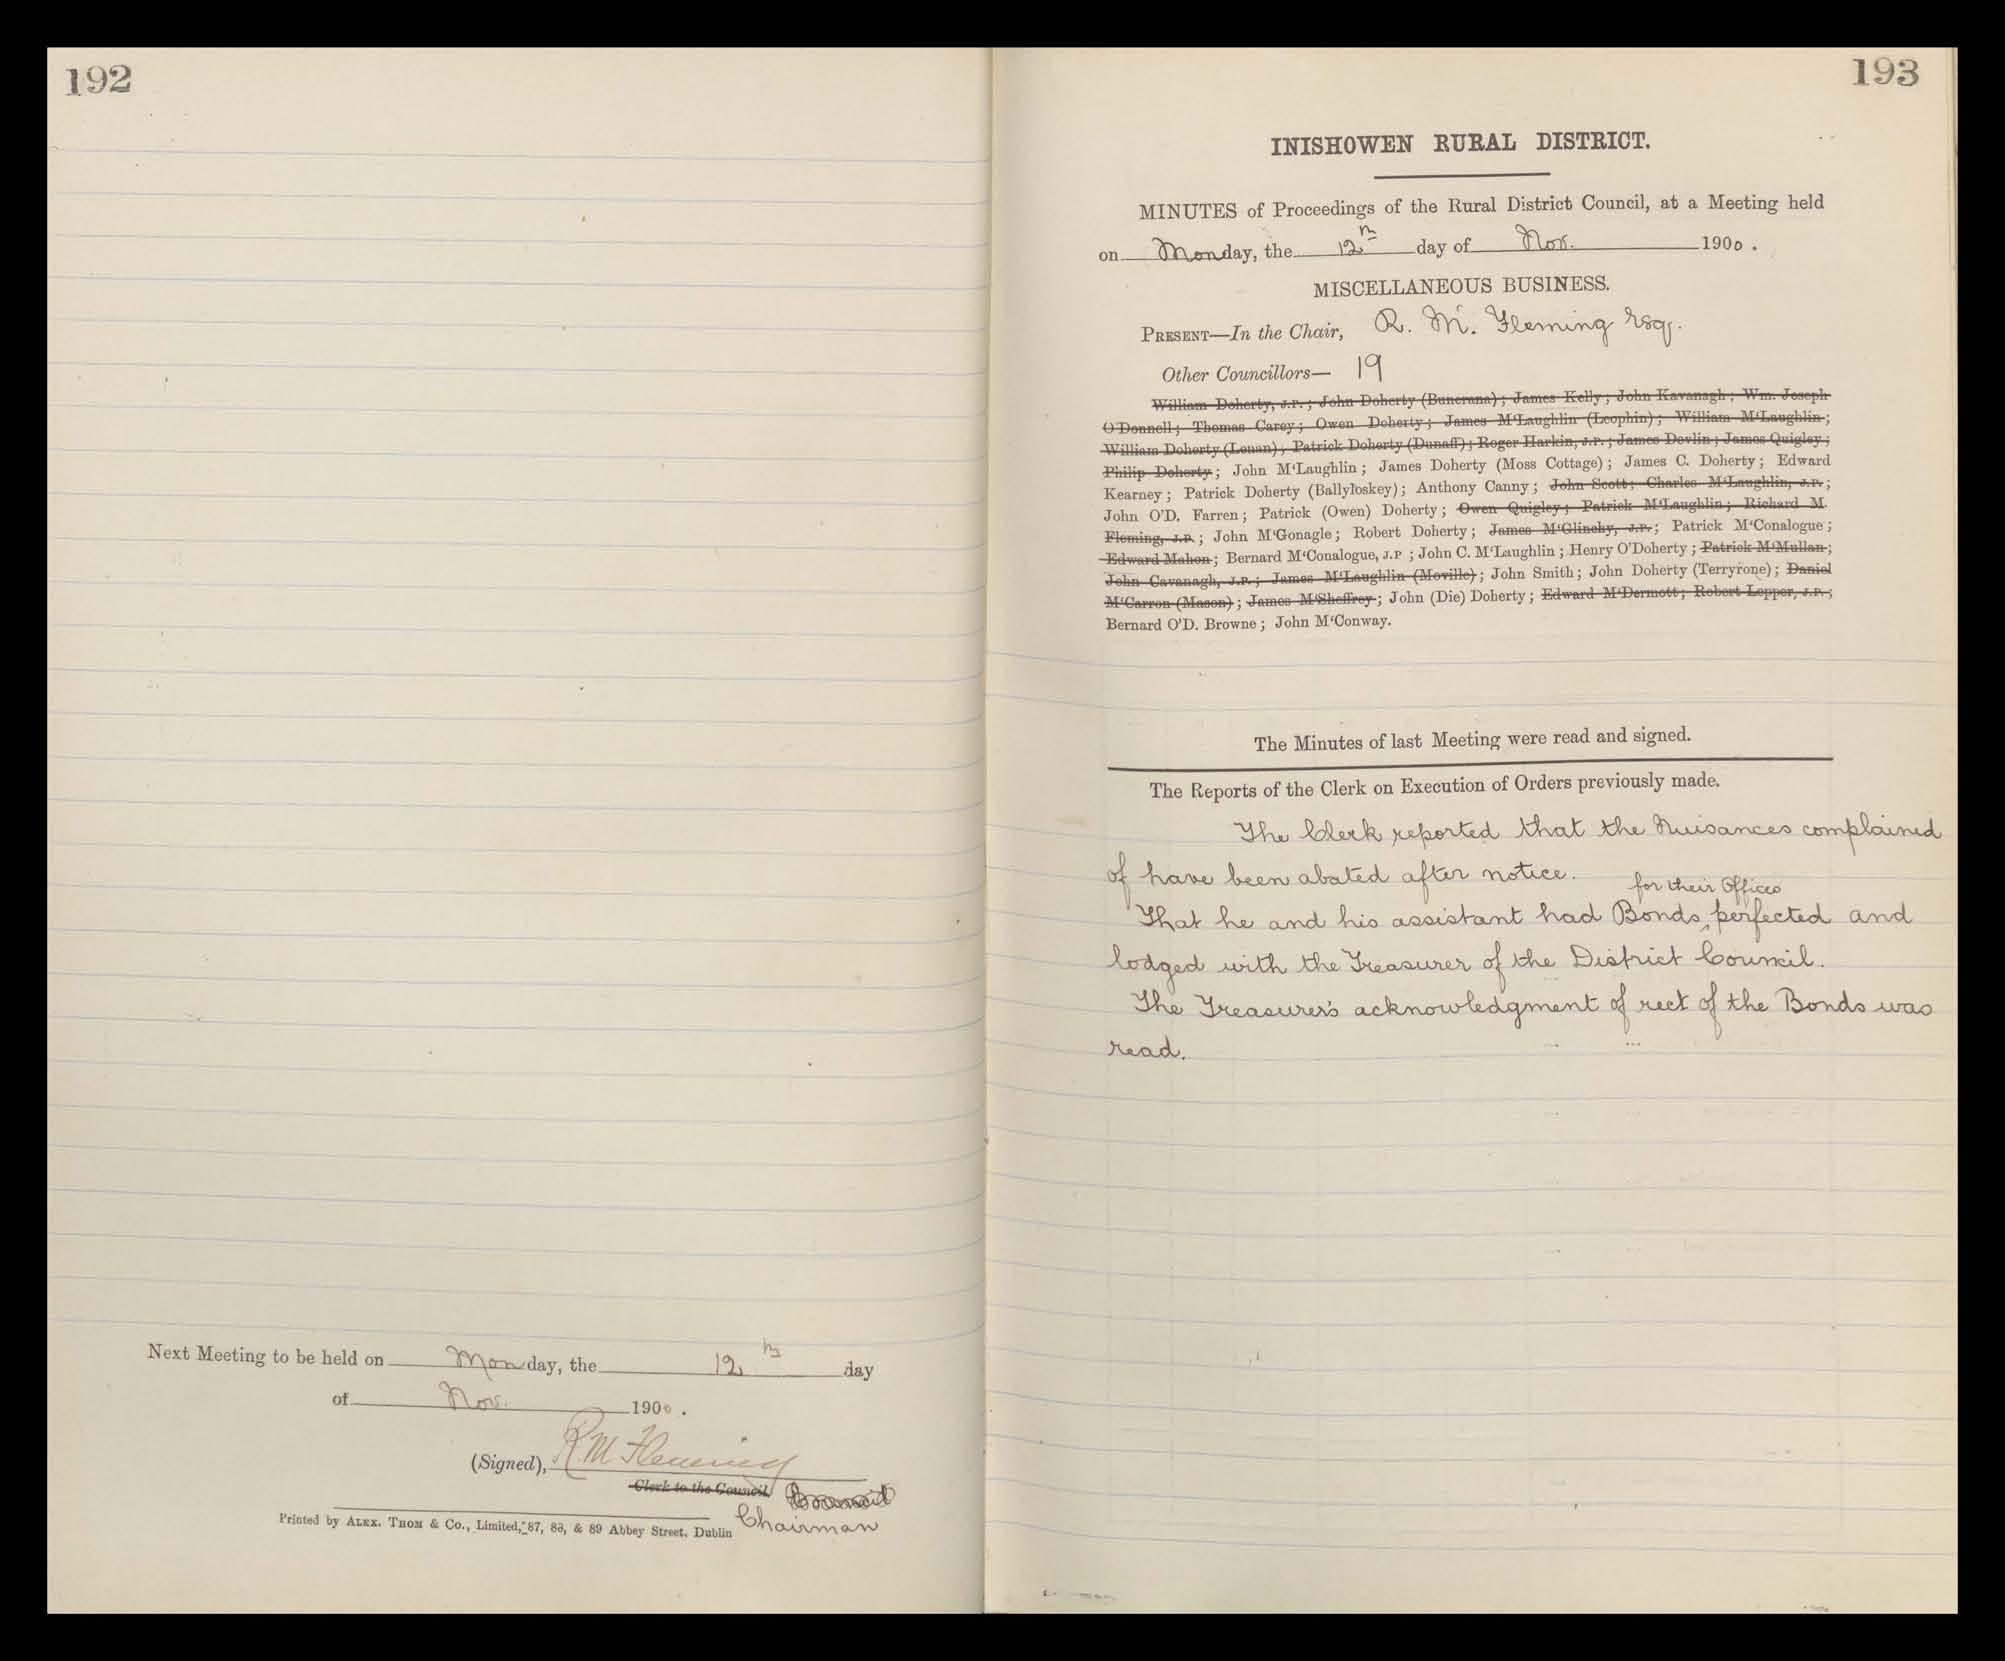 192
Next Meeting to be held on Monday, the 12th day
of Nov. 1900.
(Signed), R M Fleming
Clerk to the Council. Council
Chairman
Printed by ALEX. THOM & Co., Limited, 87, 88, & 89 Abbey Street. Dublin
193
INISHOWEN RURAL DISTRICT.
MINUTES of Proceedings of the Rural District Council, at a Meeting held
on Monday, the 12th day of Nov. 1900.
MISCELLANEOUS BUSINESS.
PRESENT—In the Chair, R. M. Fleming Esq.
Other Councillors— 19
William Doherty, J.P.; John Doherty (Buncrana); James Kelly; John Kavanagh; Wm. Joseph
O'Donnell; Thomas Carey; Owen Doherty; James M'Laughlin (Leophin); William M'Laughlin;
William Doherty (Lenan); Patrick Doherty (Dunaff); Roger Harkin, J.P.; James Devlin; James Quigley;
Philip Doherty; John M'Laughlin; James Doherty (Moss Cottage); James C. Doherty; Edward
Kearney; Patrick Doherty (Ballyloskey); Anthony Canny; John Scott; Charles M'Laughlin, J.P.;
John O'D. Farren; Patrick (Owen) Doherty; Owen Quigley; Patrick M'Laughlin; Richard M.
Fleming, J.P.; John M'Gonagle; Robert Doherty; James M'Glinchy, J.P.; Patrick M'Conalogue;
Edward Mahon; Bernard M'Conalogue, J.P; John C. M'Laughlin; Henry O'Doherty; Patrick M'Mullan;
John Cavanagh, J.P.; James M'Laughlin (Moville); John Smith; John Doherty (Terryrone); Daniel
M'Carron (Mason); James M'Sheffrey; John (Die) Doherty; Edward M'Dermott; Robert Lepper, J.P.;
Bernard O'D. Browne; John M'Conway.
The Minutes of last Meeting were read and signed.
The Reports of the Clerk on Execution of Orders previously made.
The Clerk reported that the Nuisances complained
of have been abated after notice.
for their Offices
That he and his assistant had Bonds perfected and
lodged with the Treasurer of the District Council.
The Treasurer's acknowledgment of rect of the Bonds was
read.